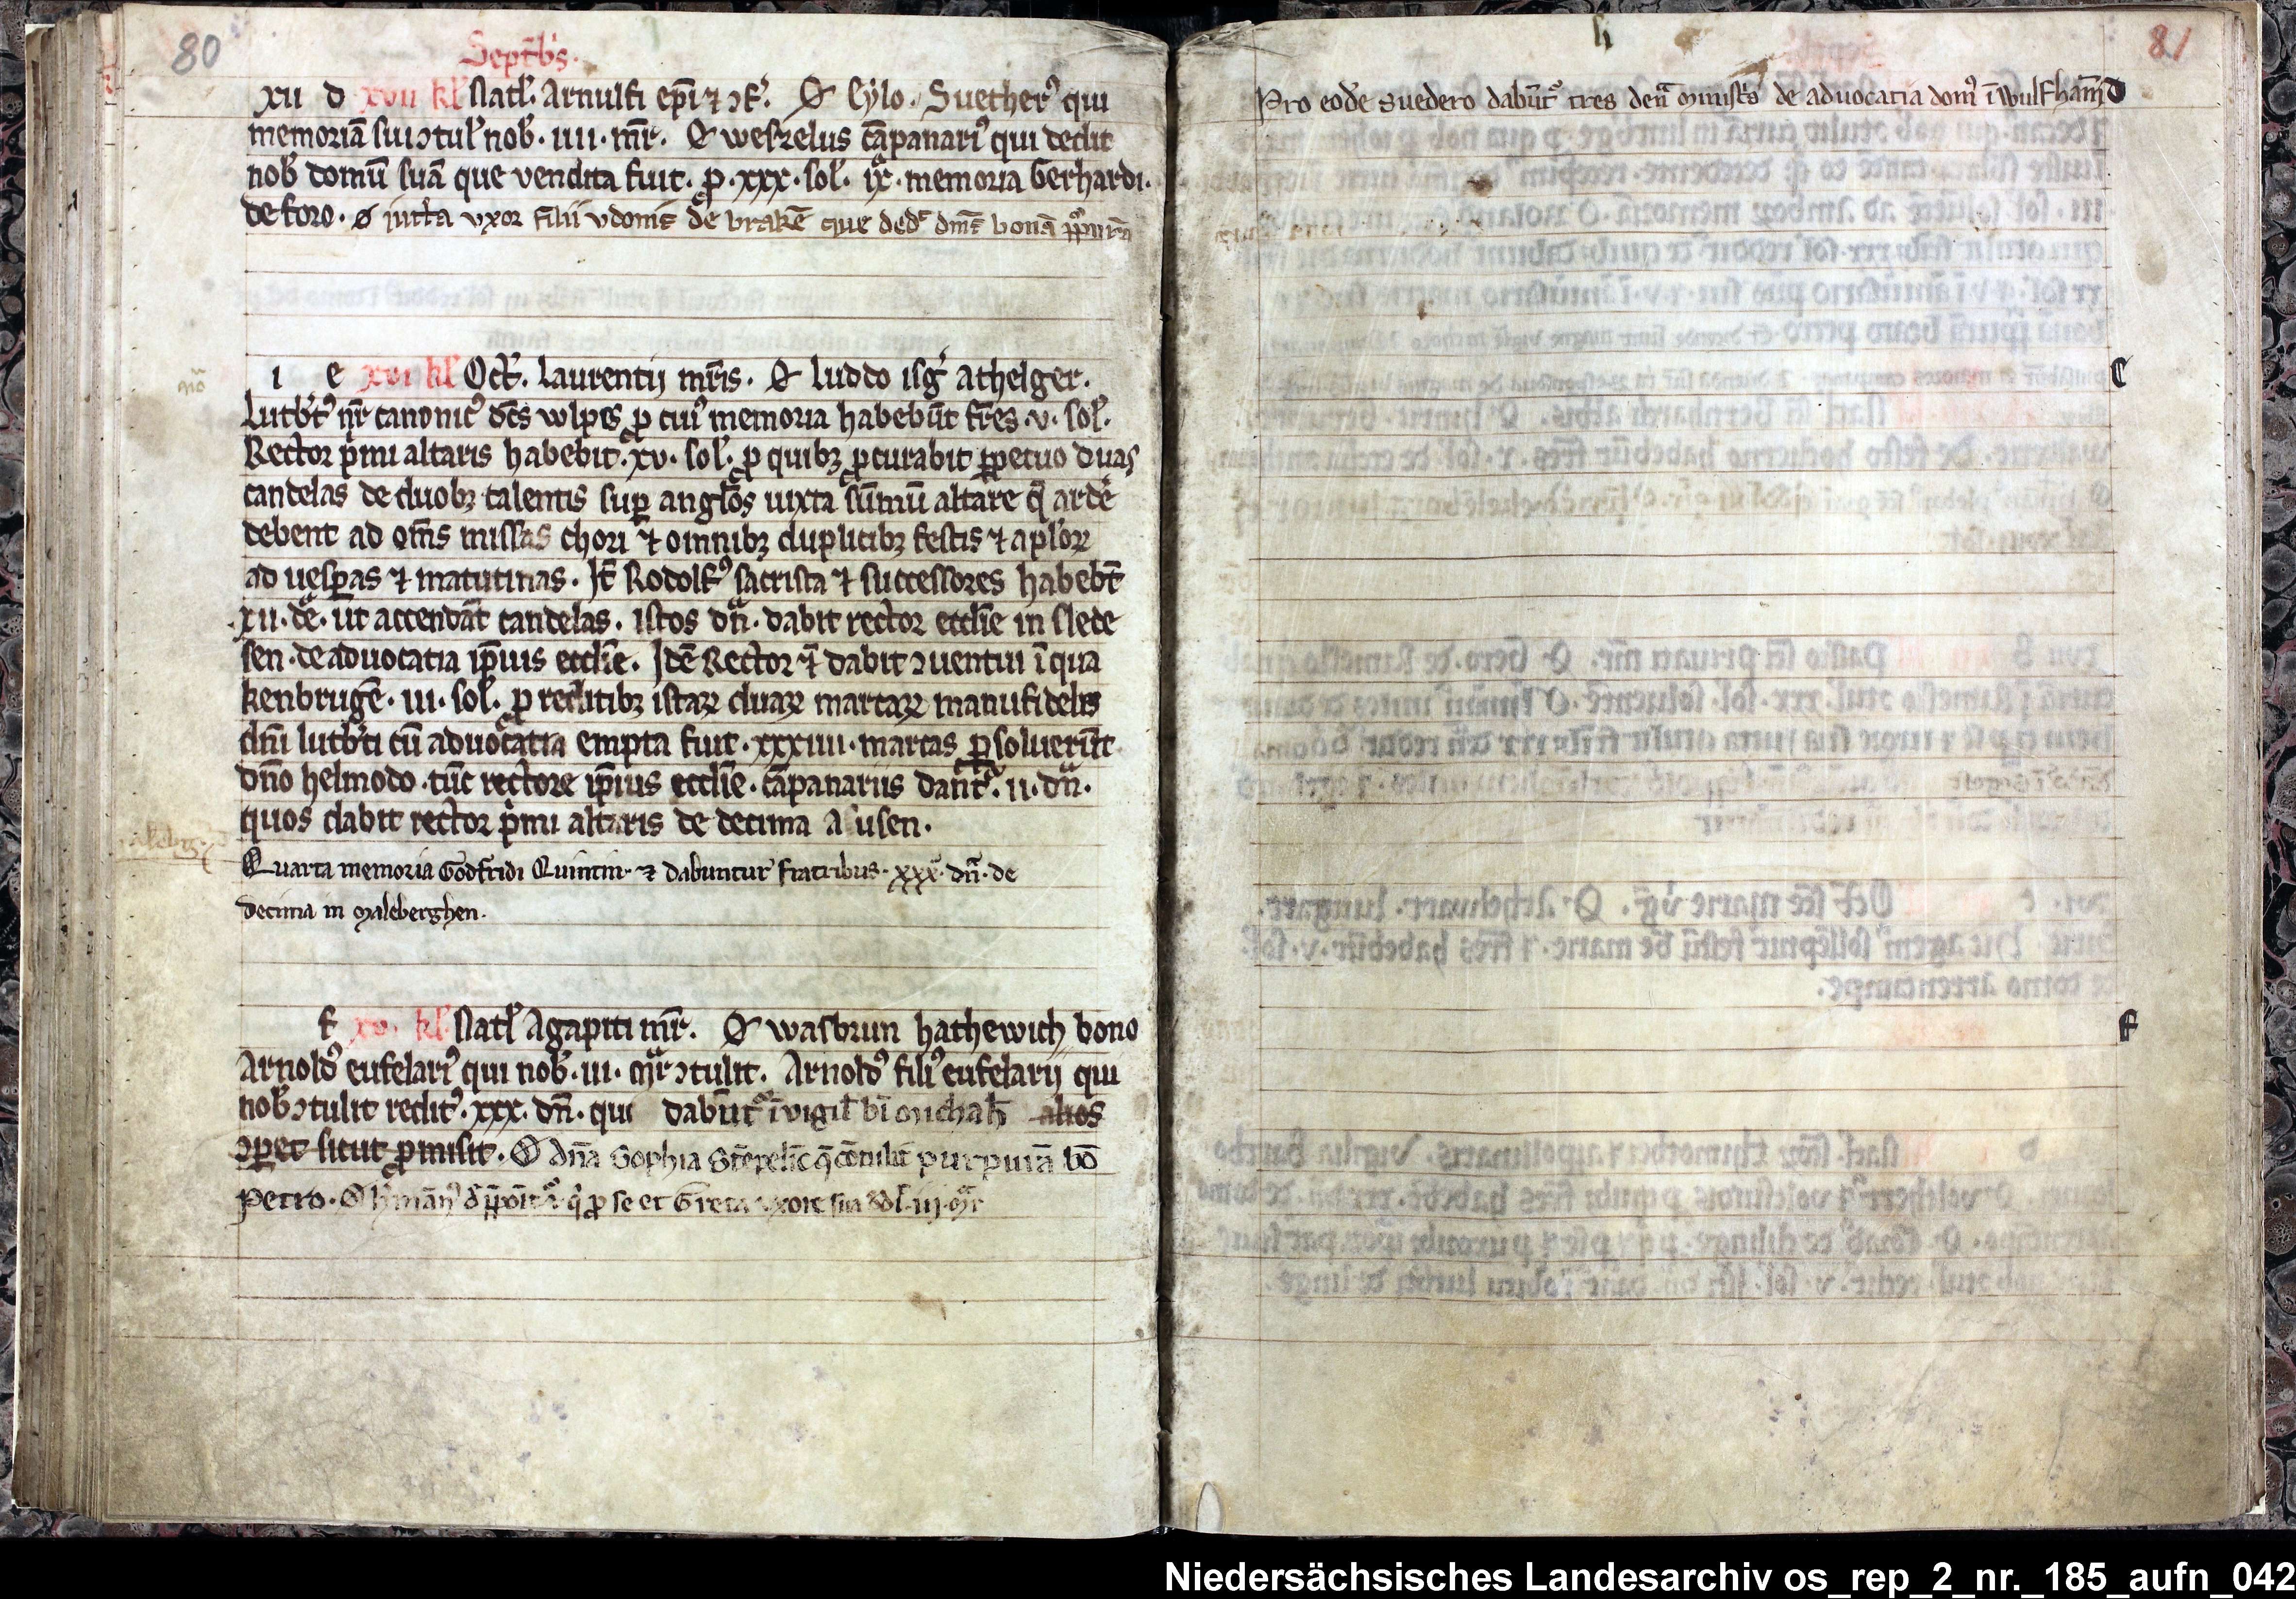 80
Septēbs.
xii d xvii kl Natl'. Arnulfi epi ⁊ ɔf'. O' Eylo. Suether' qui
memoriā sui ɔtul' nob'. iiii. mr̄. O' weszelus cāpanari' qui dedit
nob' domū suā que vendita fuit. p̱. xxx. sol'. ix. memoria Gerhardi.
de foro. jutta vxor filii vdonis de brakē que ded' bonā
i e xvi kl Oct'. Laurentij mr̄is. O' luddo athelger.
Lutb't' nr̄ canonic' dc̄s wlpes p̱ cui' memoria habebūt fr̄es. v. sol'.
Rector p'mi altaris habebit. xv. sol'. p̱ quibꝫ p̱curabit ꝑpetuo duas
candelas de duobꝫ talentis suꝑ anglōs iuxta sūmū altare q̄ ardē
debent ad om̄s missas chori ⁊ omnibꝫ duplicibꝫ festis ⁊ aplōꝝ
ad uesꝑas ⁊ matutinas. Jt̄ Rodolf' sacrista ⁊ successores habebt̄
xii. dē. ut accendāt candelas. istos dn̄. dabit rector ecclīe in slede
sen. de aduocatia ip̄ius ecclīe. Jdē Rector ⁊ dabit ɔuentui ī qua
kenbrugē. iii. sol'. p̱ redditibꝫ istaꝝ duaꝝ marcaꝝ manufidelis
dn̄i lutb'ti cū aduocatia empta fuit. xxxiiii. marcas ꝑsoluerūt
dn̄o helmodo. tūc rectore ip̄ius ecclīe. cāpanariis dant'. ii. dn̄.
quos dabit rector p'mi altaris de decima a usen.
Quarta memoria Godfridi Quintin. ⁊ dabuntur fratribus. xxx. dn̄. de
decima in Maleberghen.
f xv. kl. Natl' Agapiti mr̄. O' wasbrun hathewich bono
Arnold' eufelari' qui nob'. iii. mr̄ ɔtulit. Arnold' fili' eufelarij qui
nob' ɔtulit reddit'. xxx. dn̄. qui dabūt' ī vigil' bi michah' alios
ɔꝑet sicut p̱misit. O dn̄a Sophia q̄ cōtulit purpurā bō
Petro. O h'mān' q' p̱ se et Greta uxore sua iij mr̄
81
h
Pro eodē suedero dabūt' tres den̄ minist's de aduocatia dom' ī wulfham̄ D
C
F
Niedersächsisches Landesarchiv os_rep_2_nr._185_aufn_042